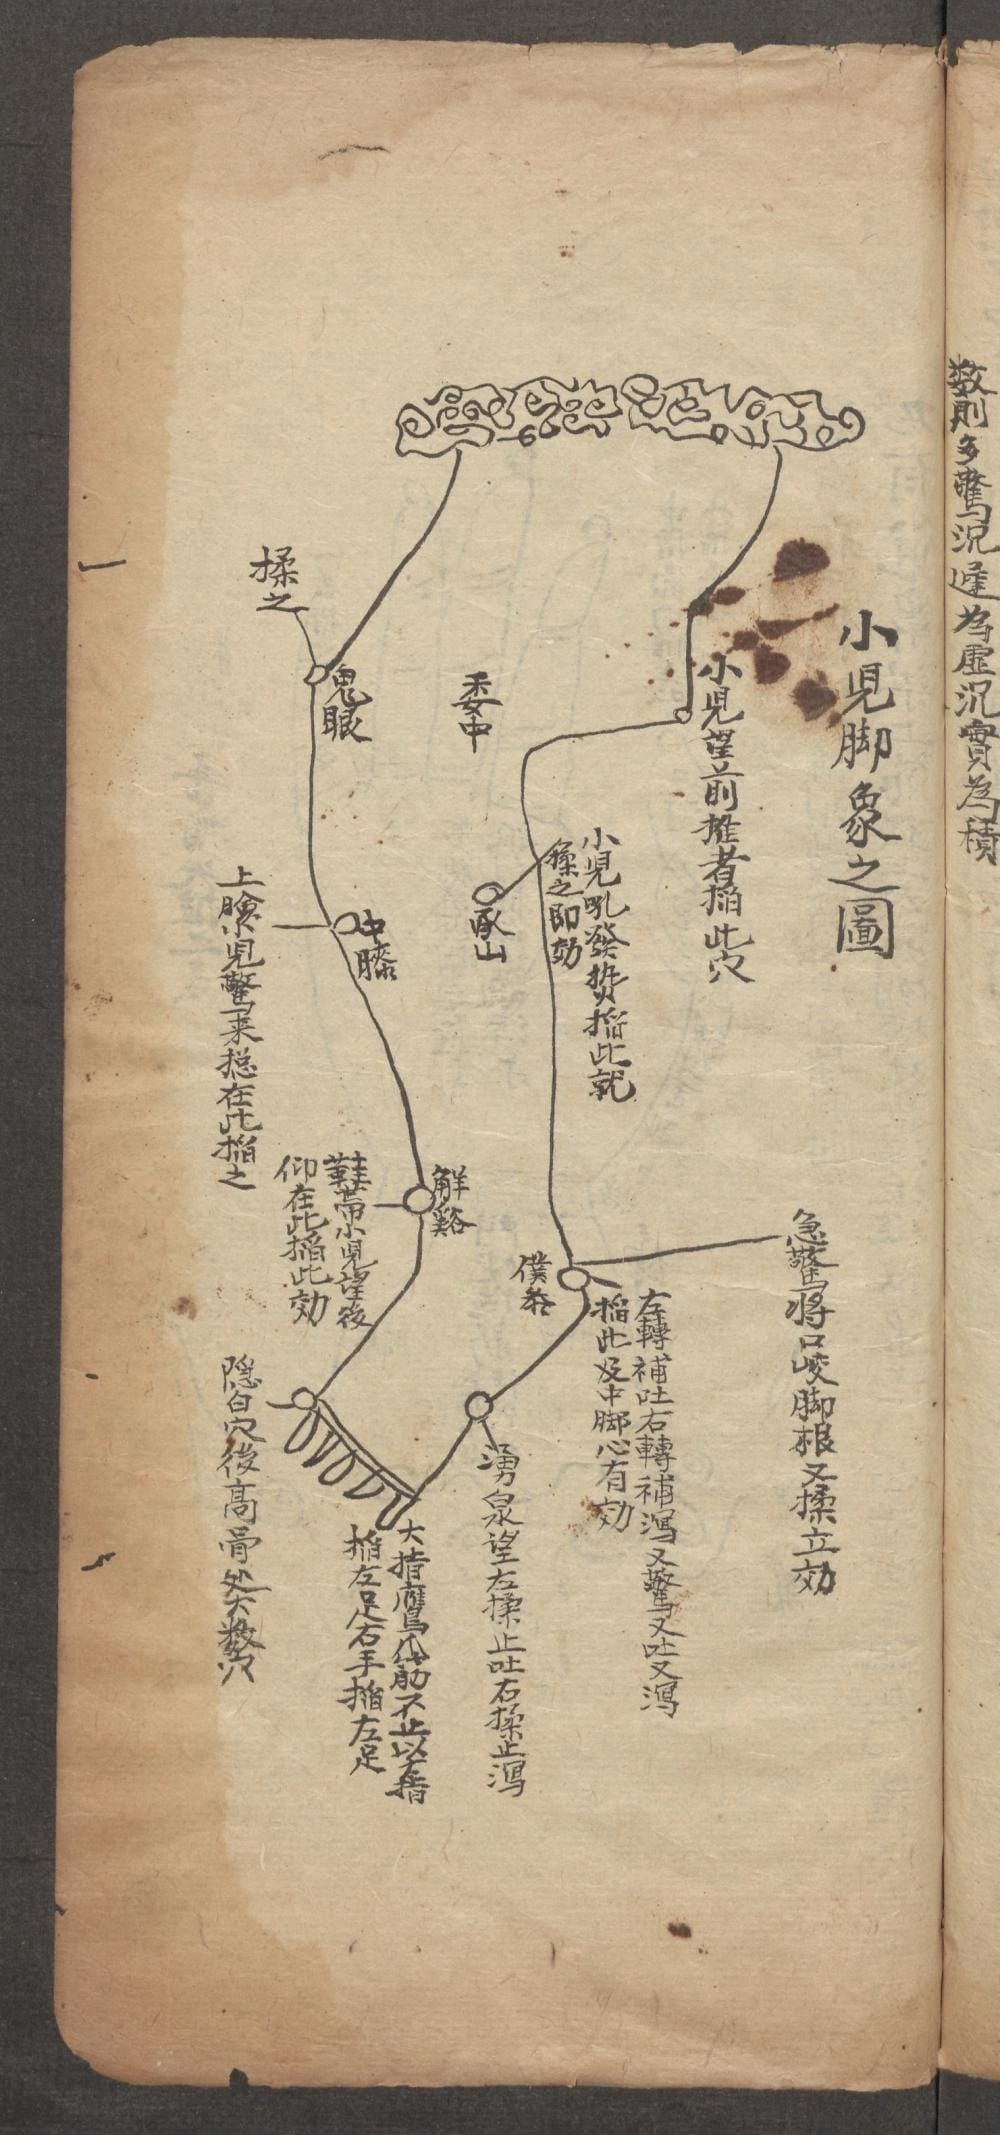 數則多驚沉遲為虛沉實為積
小児脚象之圖
小児望前推者掐此穴
急驚將口咬脚根又揉立効
左轉補吐右轉補瀉又驚又吐又瀉
掐此及中脚心有効
小児吼發熱掐此就
揉之即効
僕參
委中
承山
湧泉望左揉止吐右揉止瀉
解谿
大指鷹爪筋不止以右指
掐左足右手掐左足
鬼眼
中膝
鞋帶小児望後
仰在此掐此効
揉之
上膁小児驚来總在此掐之
隐白穴後高骨处大敦穴